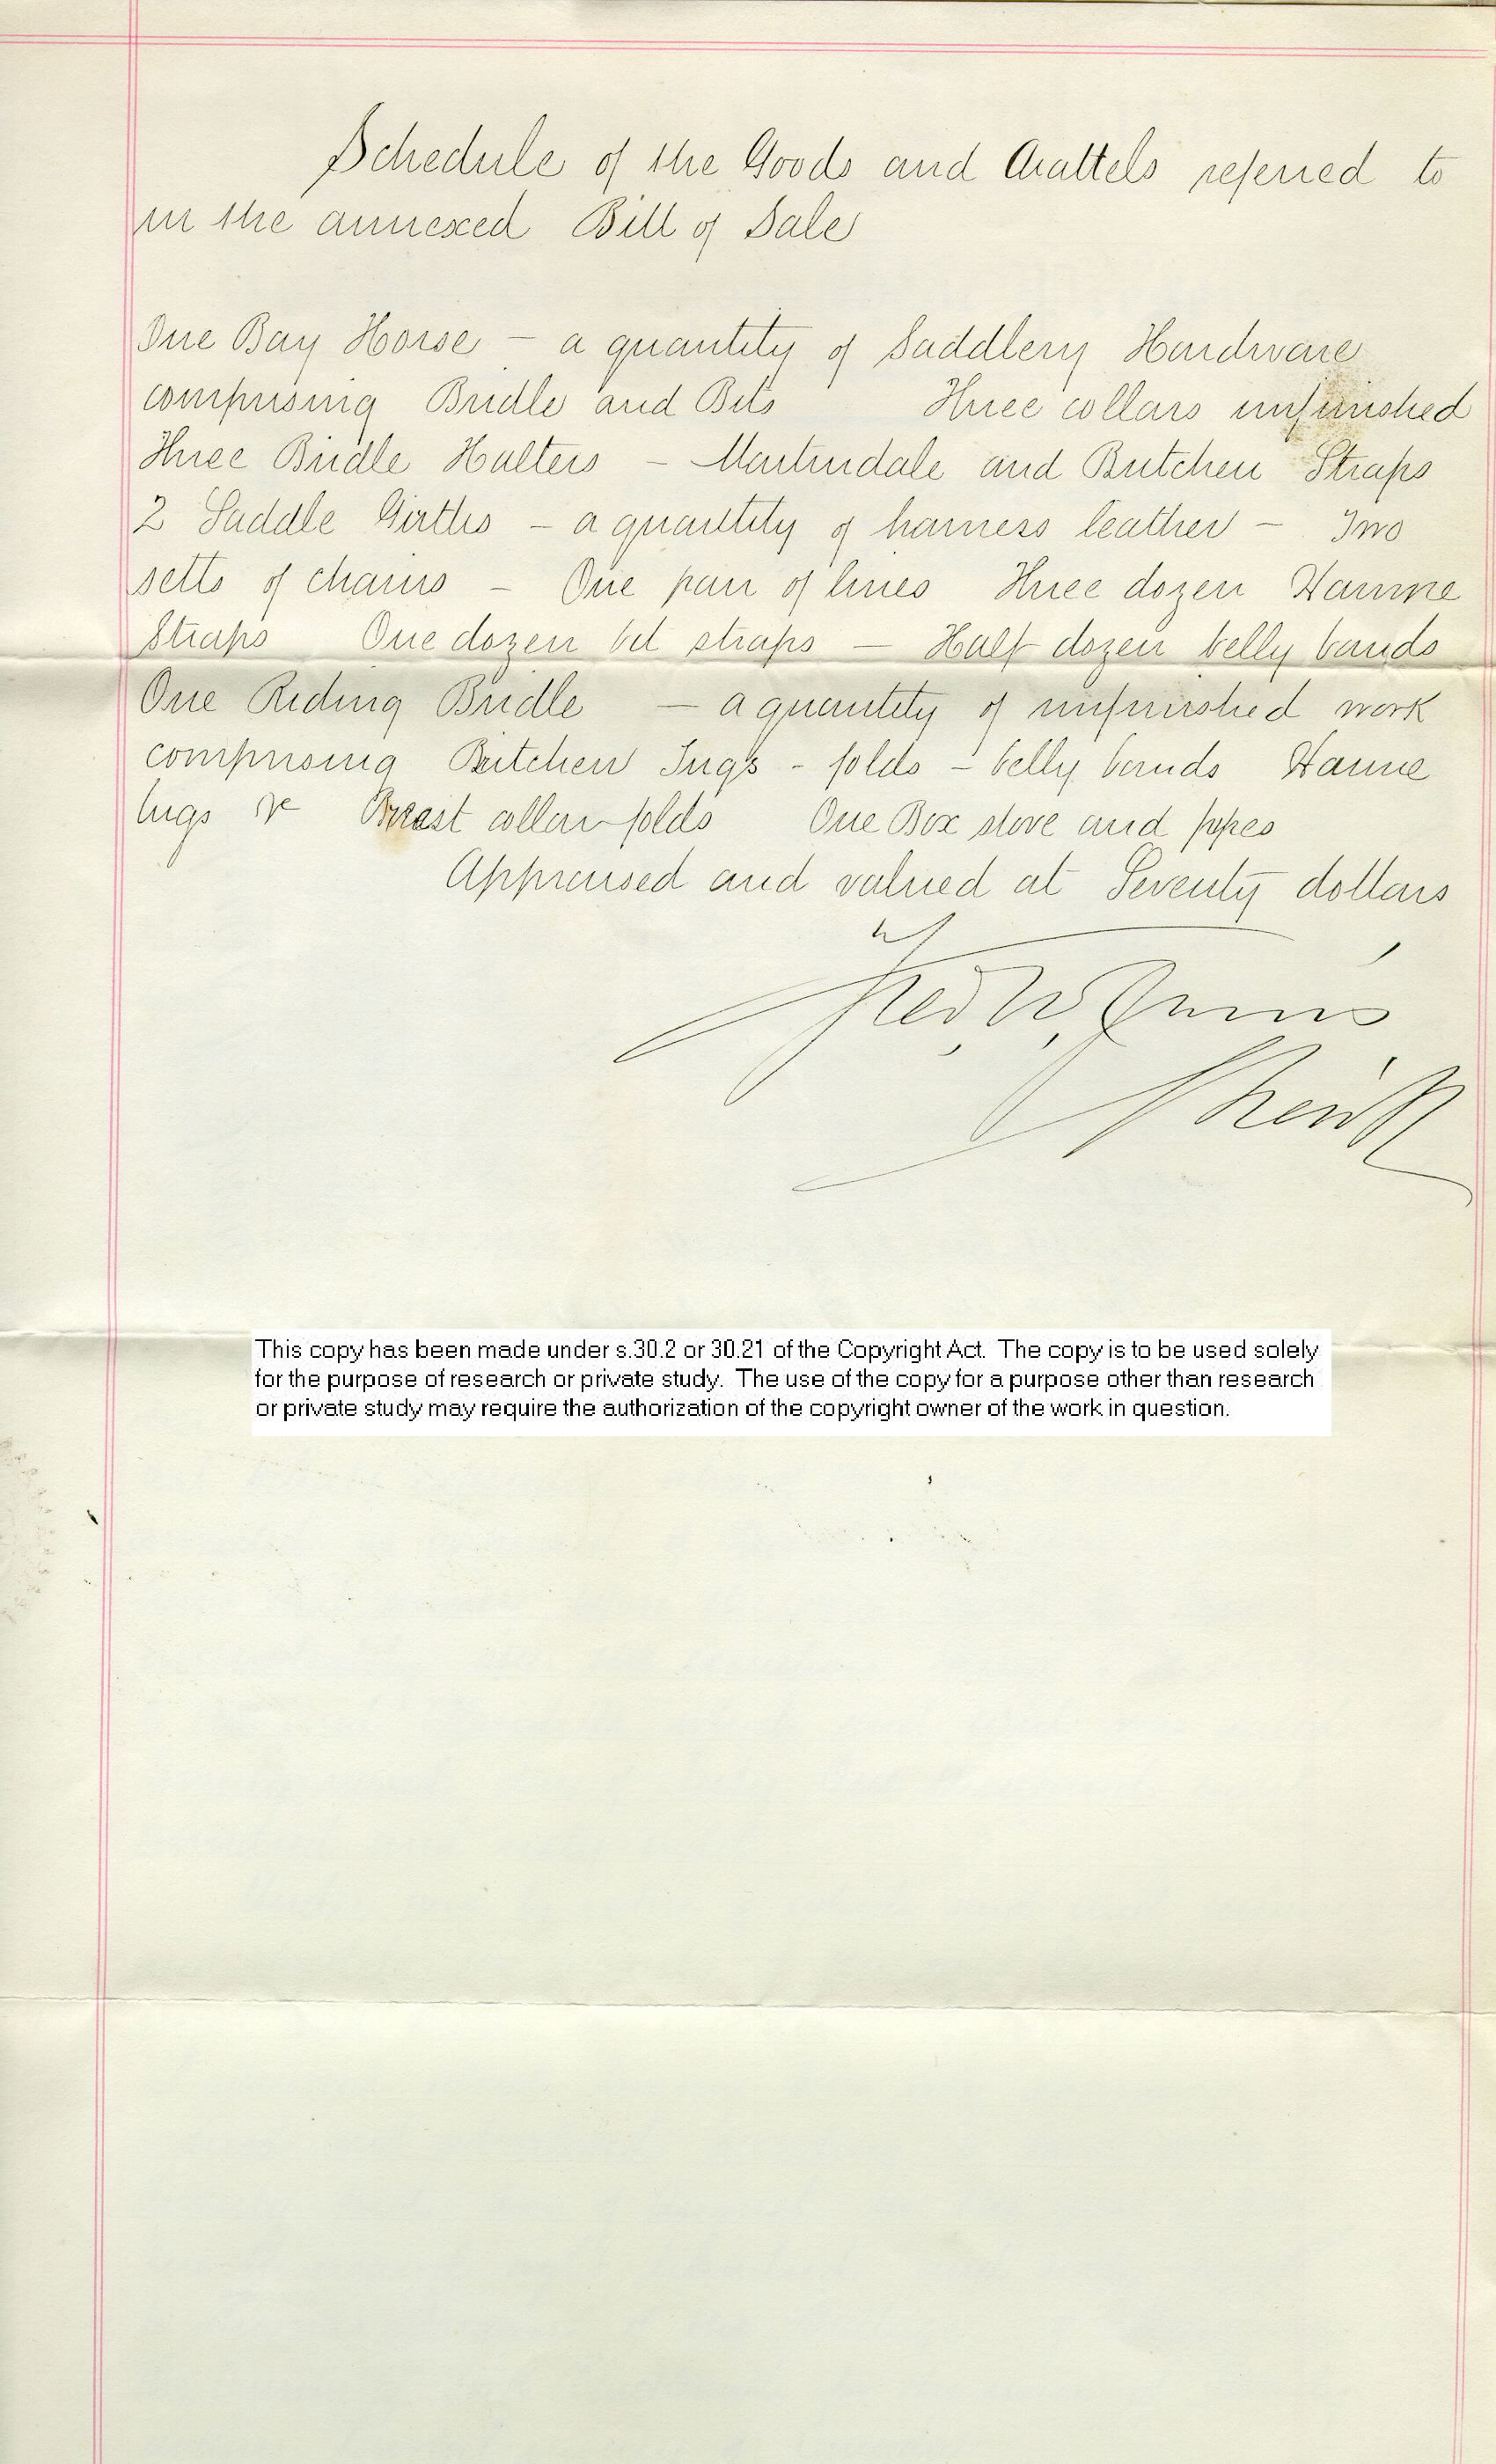 Schedule of the Goods and Chattels referred to
in the annexed Bill of Sale
One Bay Horse – a quantity of Saddlery Hardware
comprising Bridle and Bits Three collars unfinished
Three Bridle Halters – Martindale and Butchen Straps
2 Saddle Girths – a quantity of harness leather – Two
setts of chains – One pair of lines Three dozen Hamne
Straps One dozen bit straps – Half dozen belly bands
One Riding Bridle – a quantity of unfinished work
comprising Butchen Tugs - folds - belly bands Hame
lugs & Breast collar folds One Box stove and pipes
Appraised and valued at Seventy dollars
Fred. W.
Sheriff
This copy has been made under s.30.2 or 30.21 of the Copyright Act. The copy is to be used solely
for the purpose of research or private study. The use of the copy for a purpose other than research
or private study may require the authorization of the copyright owner of the work in question.